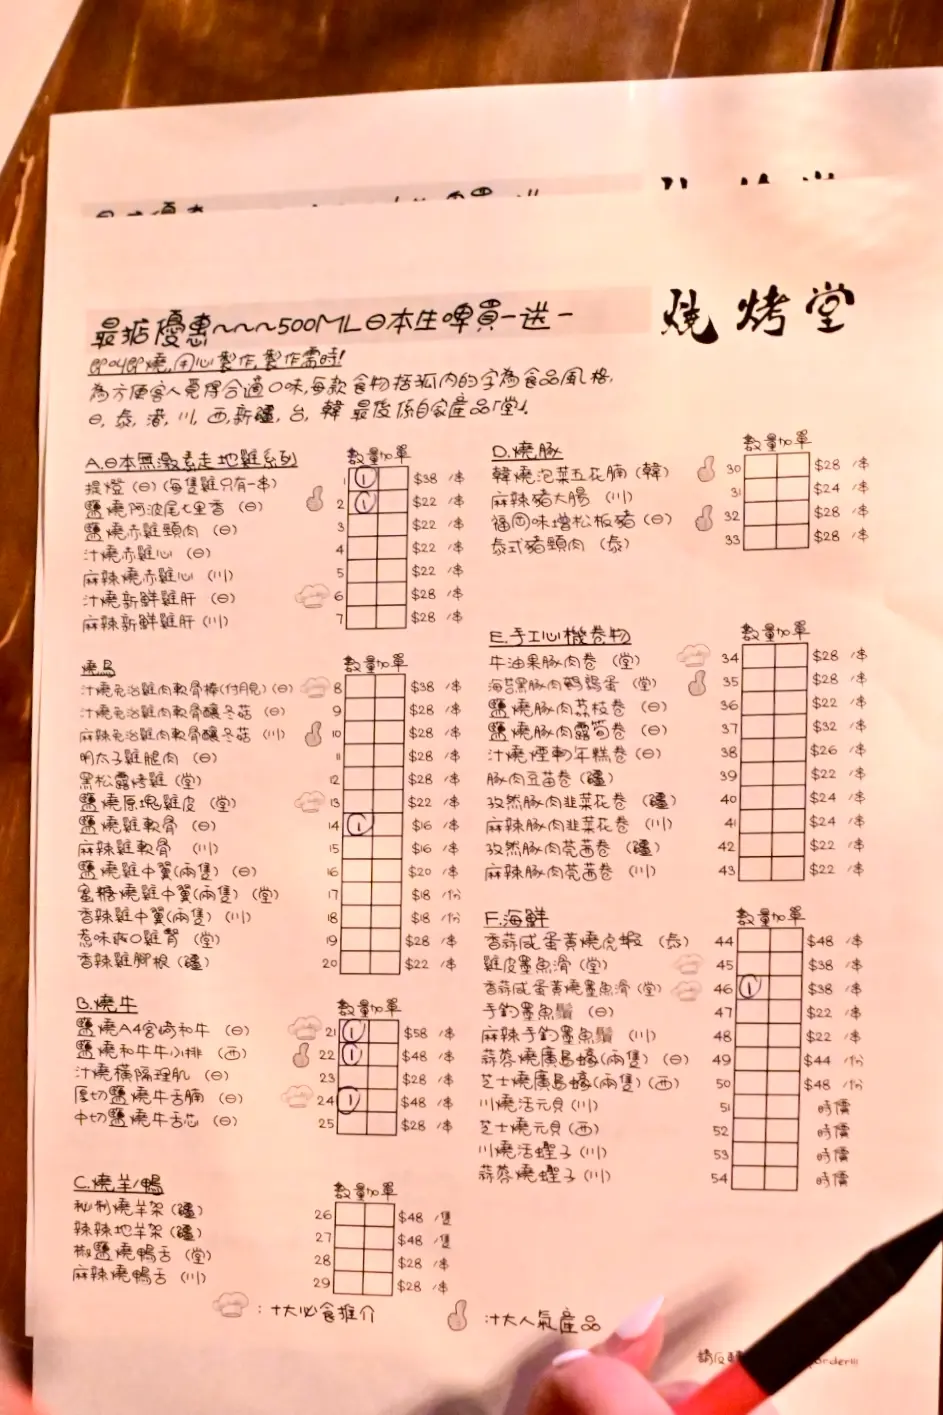 燒烤堂
最掂優惠~~~500ML日本生啤買一送一
即叫即燒,用心製作,製作需時!
為方便客人覓得合適口味,每款食物括弧內的字為食品風格,
日, 泰, 港, 川, 西, 新疆, 台, 韓 最後係自家產品「堂」.
A.日本無激素走地雞系列 數量 加單
提燈 (日) (每隻雞只有一串) 1 ① $38 /串
鹽燒阿波尾七里香 (日) 2 ① $22 /串
鹽燒赤雞頸肉 (日) 3 $22 /串
汁燒赤雞心 (日) 4 $22 /串
麻辣燒赤雞心 (川) 5 $22 /串
汁燒新鮮雞肝 (日) 6 $28 /串
麻辣新鮮雞肝 (川) 7 $28 /串
燒鳥 數量 加單
汁燒免治雞肉軟骨棒(付月見) (日) 8 $38 /串
汁燒免治雞肉軟骨釀冬菇 (日) 9 $28 /串
麻辣免治雞肉軟骨釀冬菇 (川) 10 $28 /串
明太子雞腿肉 (日) 11 $28 /串
黑松露烤雞 (堂) 12 $28 /串
鹽燒原塊雞皮 (堂) 13 $22 /串
鹽燒雞軟骨 (日) 14 ① $16 /串
麻辣雞軟骨 (川) 15 $16 /串
鹽燒雞中翼(兩隻) (日) 16 $20 /串
蜜糖燒雞中翼(兩隻) (堂) 17 $18 /份
香辣雞中翼(兩隻) (川) 18 $18 /份
惹味爽口雞腎 (堂) 19 $28 /串
香辣雞腳根 (疆) 20 $22 /串
B.燒牛 數量 加單
鹽燒A4宮崎和牛 (日) 21 ① $58 /串
鹽燒和牛牛小排 (西) 22 ① $48 /串
汁燒橫隔理肌 (日) 23 $28 /串
厚切鹽燒牛舌腩 (日) 24 ① $48 /串
中切鹽燒牛舌芯 (日) 25 $28 /串
C.燒羊/鴨 數量 加單
秘制燒羊架 (疆) 26 $48 /隻
辣辣地羊架 (疆) 27 $48 /隻
椒鹽燒鴨舌 (堂) 28 $28 /串
麻辣燒鴨舌 (川) 29 $28 /串
D.燒豚 數量 加單
韓燒泡菜五花腩 (韓) 30 $28 /串
麻辣豬大腸 (川) 31 $24 /串
福岡味增松板豬 (日) 32 $28 /串
泰式豬頸肉 (泰) 33 $28 /串
E.手工心機卷物 數量 加單
牛油果豚肉卷 (堂) 34 $28 /串
海苔黑豚肉鵪鶉蛋 (堂) 35 $28 /串
鹽燒豚肉荔枝卷 (日) 36 $22 /串
鹽燒豚肉露筍卷 (日) 37 $32 /串
汁燒煙韌年糕卷 (日) 38 $26 /串
豚肉豆苗卷 (疆) 39 $22 /串
孜然豚肉韭菜花卷 (疆) 40 $24 /串
麻辣豚肉韭菜花卷 (川) 41 $24 /串
孜然豚肉莞茜卷 (疆) 42 $22 /串
麻辣豚肉莞茜卷 (川) 43 $22 /串
F.海鮮 數量 加單
香蒜咸蛋黃燒虎蝦 (泰) 44 $48 /串
雞皮墨魚滑 (堂) 45 $38 /串
香蒜咸蛋黃燒墨魚滑 (堂) 46 ① $38 /串
手釣墨魚鬚 (日) 47 $22 /串
麻辣手釣墨魚鬚 (川) 48 $22 /串
蒜蓉燒廣島蠔(兩隻) (日) 49 $44 /份
芝士燒廣島蠔(兩隻) (西) 50 $48 /份
川燒活元貝 (川) 51 時價
芝士燒元貝 (西) 52 時價
川燒活蟶子 (川) 53 時價
蒜蓉燒蟶子 (川) 54 時價
: 十大必食推介
: 汁大人氣產品